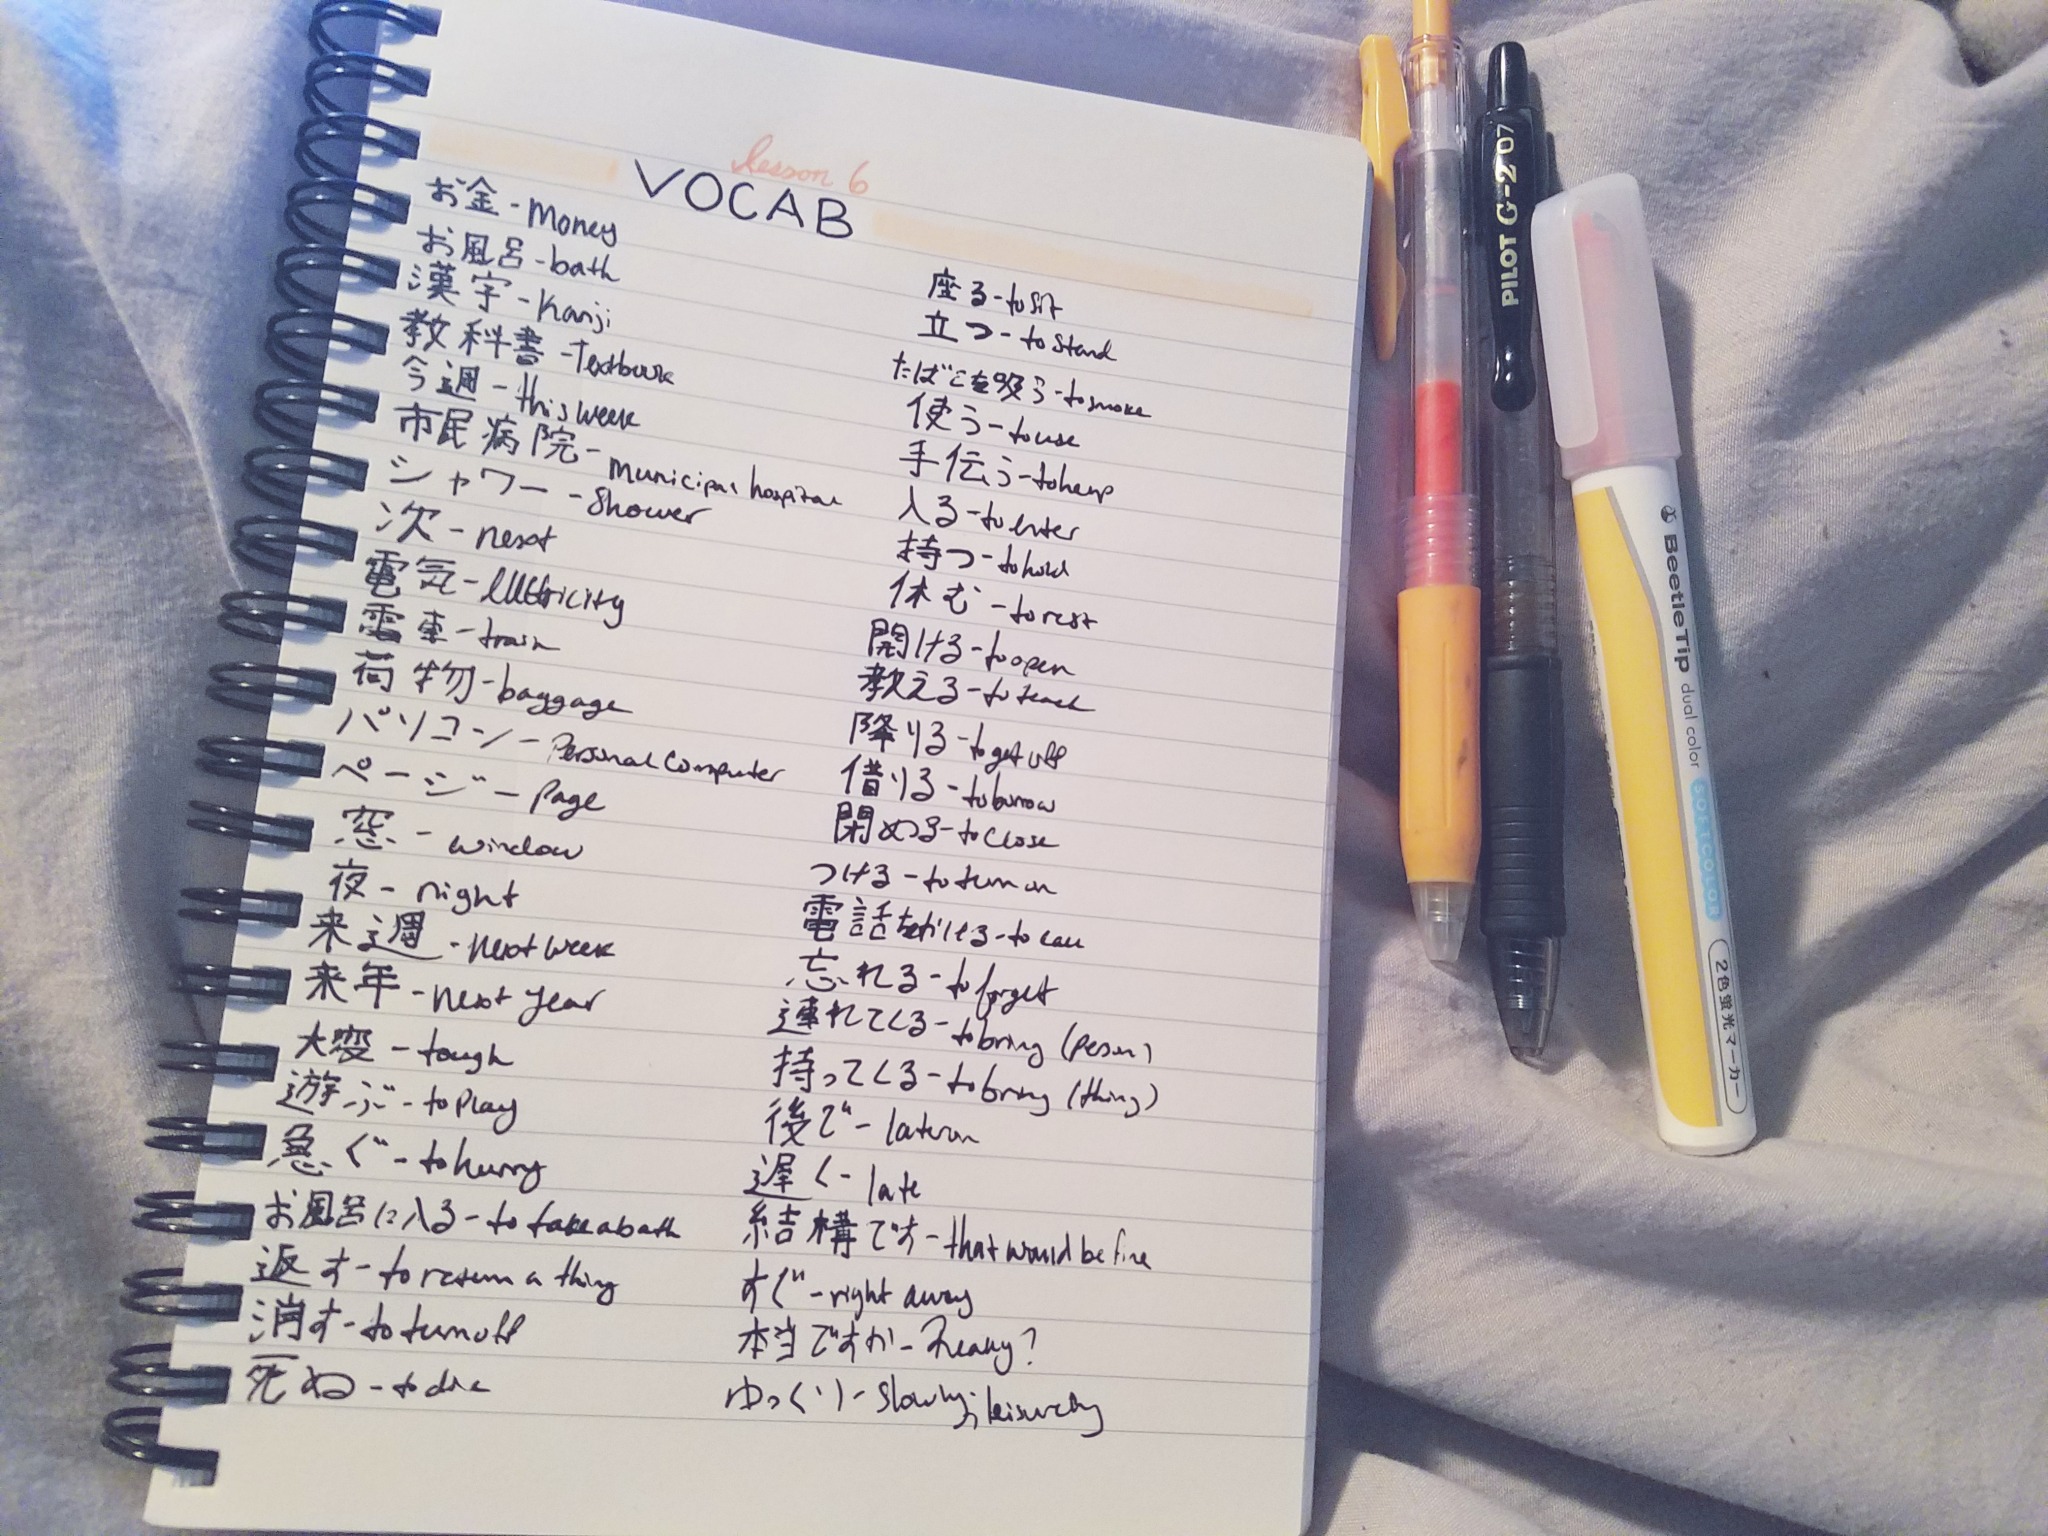 lesson 6
VOCAB
お金 - money
お風呂 - bath
漢字 - Kanji
教科書 - Textbook
今週 - this week
市民病院 - municipal hospital
シャワー - Shower
次 - next
電気 - electricity
電車 - train
荷物 - baggage
パソコン - Personal Computer
ページ - Page
窓 - window
夜 - night
来週 - next week
来年 - next year
大変 - tough
遊ぶ - to play
急ぐ - to hurry
お風呂に入る - to take a bath
返す - to return a thing
消す - to turn off
死ぬ - to die
座る - to sit
立つ - to stand
たばこを吸う - to smoke
使う - to use
手伝う - to help
入る - to enter
持つ - to hold
休む - to rest
開ける - to open
教える - to teach
降りる - to get off
借りる - to borrow
閉める - to close
つける - to turn on
電話をかける - to call
忘れる - to forget
連れてくる - to bring (person)
持ってくる - to bring (thing)
後で - later on
遅く - late
結構です - that would be fine
すぐ - right away
本当ですか - Really?
ゆっくり - slowly; leisurely
PILOT G-2 07
BeetleTip dual color SOFTCOLOR 2色蛍光マーカー